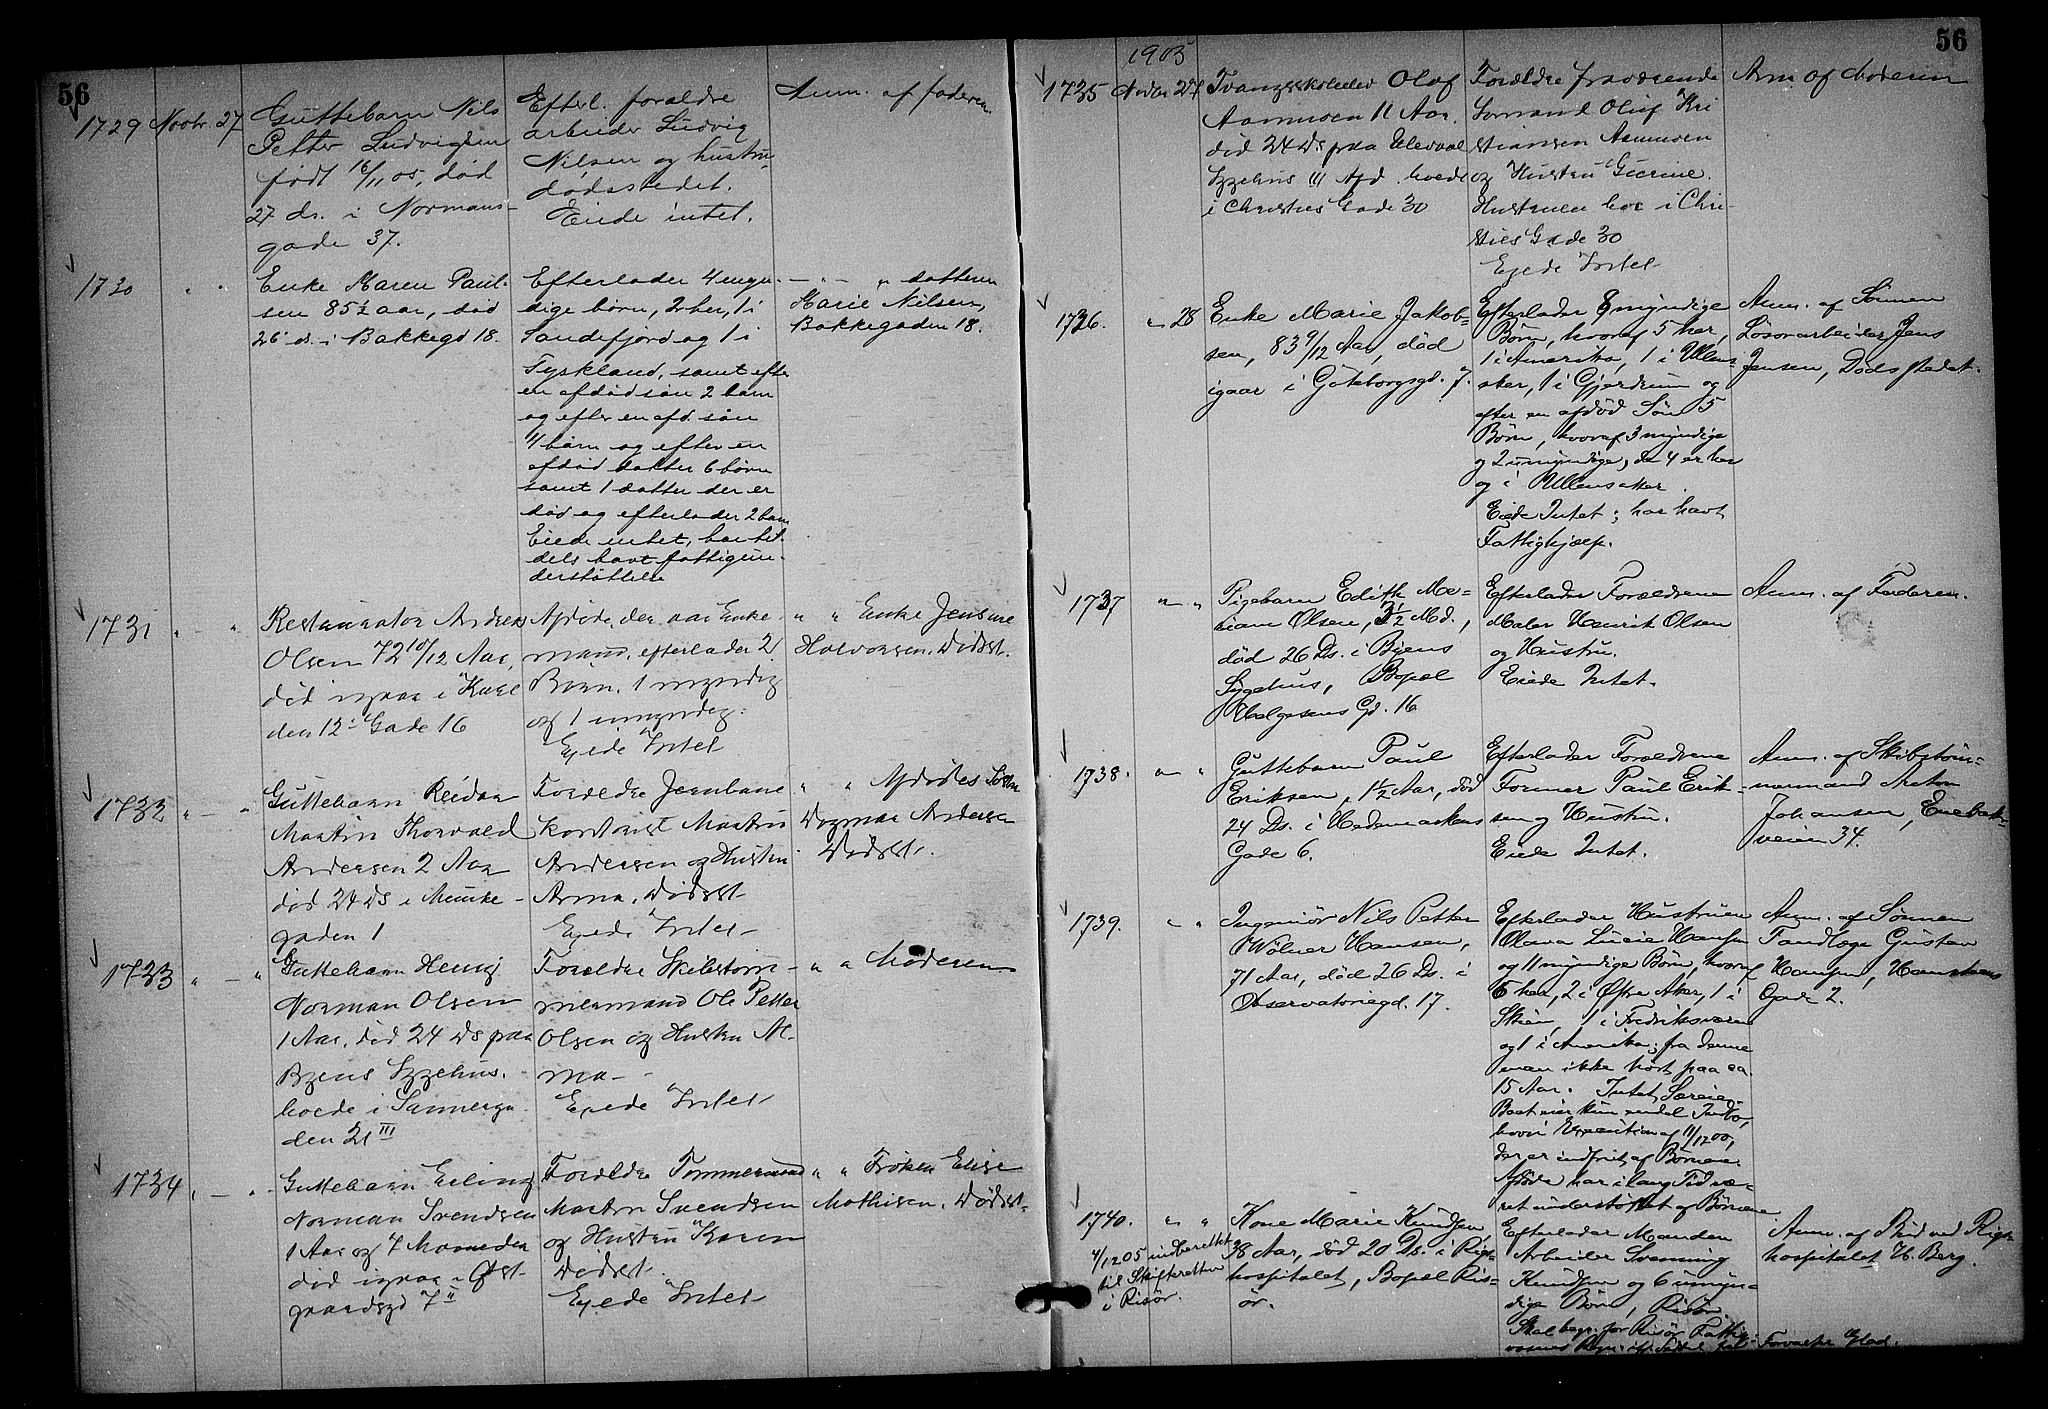 56
1729 Novbr. 27
Guttebarn Nils
Petter Ludvigsen
født 16/11 05, død
27 ds. i Normans-
gade 37.
Efterl. forældre
arbeider Ludvig
Nilsen og hustru
dødsstedet.
Eiede intet.
Anm. af faderen
1730 " "
Enke Maren Paul-
sen 85½ aar, død
26 ds. i Bakkegd 18.
Efterlader 4 myn-
dige børn, 2 her, 1 i
Sandefjord og 1 i
Tyskland, samt efter
en afdød søn 2 barn
og efter en afd. søn
4 børn og efter en
afdød datter 6 børn
samt 1 datter der er
død og efterlader 2 barn
Eiede intet, har til-
dels havt fattigun-
derstøttelse
— " — " datteren
Marie Nilsen,
Bakkegaden 18.
1731 " — "
Restauratør Andreas
Olsen 72 10/12 Aar,
død igaar i Karl
den 12' Gade 16
Afdøde, der var Enke-
mand, efterlader 2
Børn, 1 myndig
og 1 umyndig.
Ejede Intet
" " Enke Jensine
Halvorsen, Dødsst.
1732 " — "
Guttebarn Reidar
Martin Thorvald
Andersen 2 Aar
død 24 Ds i Munke-
gaden 1
Forældre Jernbane
kontorist Martin
Andersen og Hustru
Anna, Dødsst
Ejede Intet
" " Afdødes Søster
Dagmar Andersen
Dødsst.
1733 " — "
Guttebarn Henry
Norman Olsen
1 Aar, død 24 Ds paa
Byens Sygehus.
boede i Sannerga-
den 21 III
Forældre Skibstøm-
mermand Ole Petter
Olsen og Hustru Al-
ma
Ejede Intet
" " Moderen
1734 " — "
Guttebarn Erling
Norman Svendsen
1 Aar og 7 Maaneder
død igaar i Øst-
gaardsgd 7 II
Forældre Tømmermand
Martin Svendsen
og Hustru Karen
Dødsst.
Ejede Intet
" " Frøken Elise
Mathisen, Dødsst.
56
1905
1735 Novbr 27
Tvangsskoleelev Olaf
Aamnoen 11 Aar.
død 24 Ds paa Ulevaal
Sygehus III Afd. boede
i Christies Gade 30
Forældre fraværende
Sømand Oluf Kri
stiansen Aamnoen
og Hustru Gurine.
Hustruen bor i Chri-
sties Gade 30
Ejede Intet
Anm af Moderen
1736. " 28
Enke Marie Jakob-
sen, 83 9/12 Aar, død
igaar i Göteborgsgd. 7.
Efterlader 8 myndige
Børn, hvoraf 5 her,
1 i Amerika, 1 i Ullens-
aker, 1 i Gjerdrum og
efter en afdød Søn 5
Børn, hvoraf 3 myndige
og 2 umyndige, de 4 er her
og i Ullensaker.
Eiede Intet; har havt
Fattighjælp.
Anm. af Sønnen
Løsarbeider Jens
Jensen, Dødsstedet.
1737 " — "
Pigebarn Edith Me-
riam Olsen, 3½ Md.,
død 26 Ds. i Byens
Sygehus, Bopæl
Helgesens Gd. 16
Efterlader Forældrene
Maler Henrik Olsen
og Hustru.
Eiede Intet.
Anm. af Faderen.
1738. " "
Guttebarn Paul
Eriksen, 1½ Aar, død
24 Ds. i Hedemarkens
Gade 6.
Efterlader Forældrene
Former Paul Erik-
sen og Hustru.
Eiede Intet.
Anm. af Skibstøm-
mermand Anton
Johansen, Enebak-
veien 34.
1739. " "
Ingeniør Nils Petter
Wølner Hansen,
71 Aar, død 26 Ds. i
Observatoriegd. 17.
Efterlader Hustruen
Olava Lucie Hansen
og 11 myndige Børn, hvoraf
6 her, 2 i Østre Aker, 1 i
Skien, 1 i Fredriksværn
og 1 i Amerika; fra denne
man ikke hørt paa ca.
15 Aar. Intet Særeie.
Boet eier kun endel Indbo,
hvori Execution af 11/12 00,
der er indfriet af Børnene.
Afdøde har i lang Tid væ-
ret understøttet af Børnene
Anm. af Sønnen
Tandlæge Gustav
Hansen, Hansteens
Gade 2.
1740. " "
4/12 05 indberettet
til Skifteretten
i Risør.
Kone Marie Knudsen,
38 Aar, død 20 Ds. i Rigs-
hospitalet, Bopæl Ris-
ør.
Efterlader Manden
Arbeider Svenning
Knudsen og 6 umyn-
dige Børn, Risør.
Skal begr. for Risør Fattig-
væsens Regn.
Anm. af Bud ved Rigs-
hospitalet H. Berg.